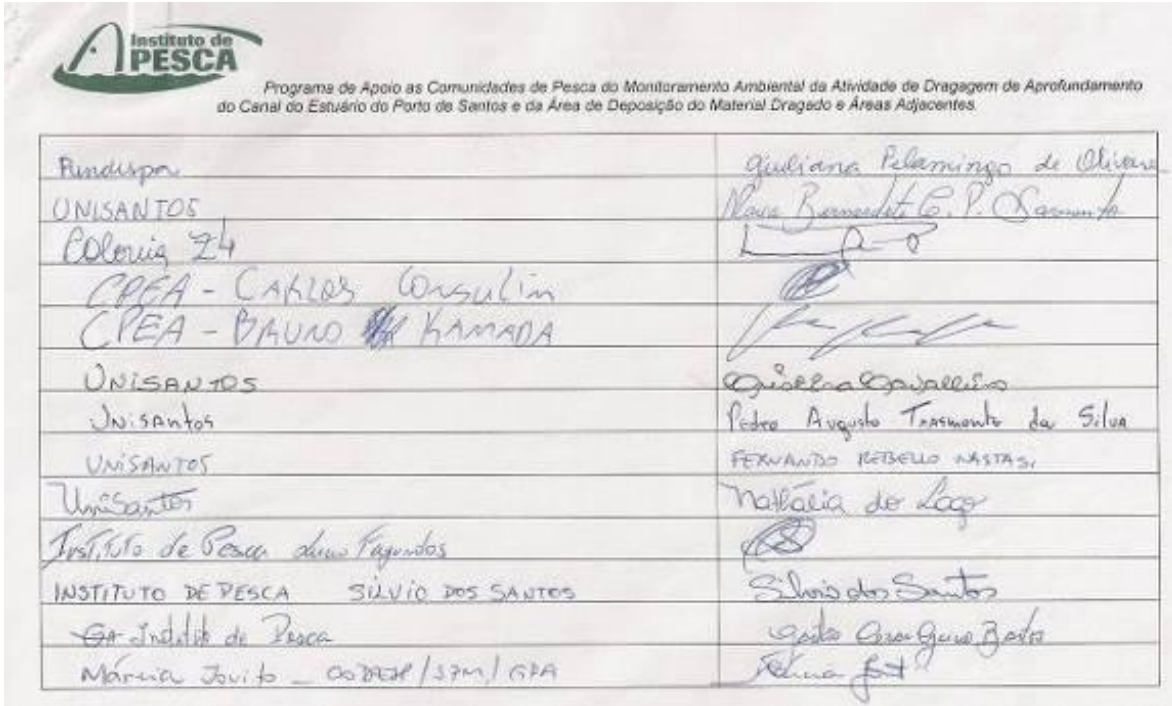 Instituto de
PESCA
Programa de Apoio as Comunidades de Pesca do Monitoramento Ambiental da Atividade de Dragagem de Aprofundamento
do Canal do Estuário do Porto de Santos e da Área de Deposição do Material Dragado e Áreas Adjacentes.
Fundespa Giuliana Pelamingo de Olivare
UNISANTOS Bernardete C. P. Sarmento
Colonia Z4
CPEA - CARLOS Consulin
CPEA - BRUNO KAMADA
UNISANTOS
UNISANTOS Pedro Augusto Trasmonte da Silva
UNISANTOS FERNANDO REBELLO NASTASI
UniSantos Nathália do Lago
Instituto de Pesca Fagundes
INSTITUTO DE PESCA SILVIO DOS SANTOS Silvio dos Santos
Instituto de Pesca
Márcia Jovito - CODESP/SPM/GPA